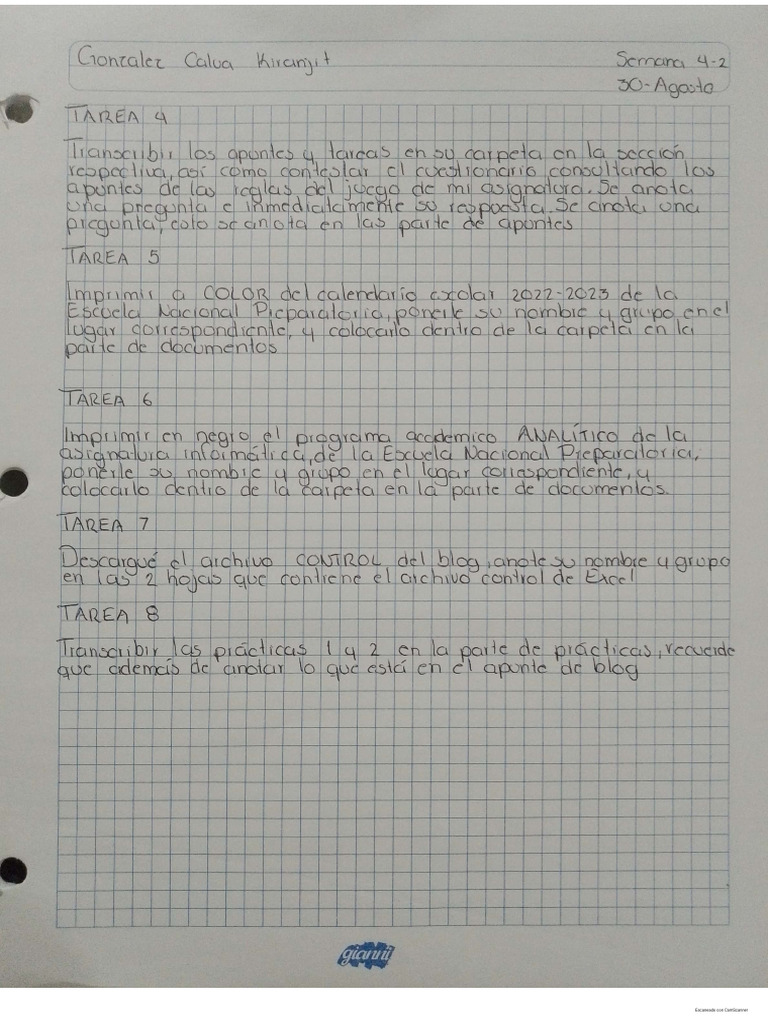 Gonzalez Calva Kiranjit
Semana 4-2
30-Agosto
TAREA 4
Transcribir los apuntes y tareas en su carpeta en la sección
respectiva, así como contestar el cuestionario consultando los
apuntes de las reglas del juego de mi asignatura. Se anota
una pregunta e inmediatamente su respuesta. Se anota una
pregunta, colo se anota en las parte de apuntes
TAREA 5
Imprimir a COLOR del calendario escolar 2022-2023 de la
Escuela Nacional Preparatoria, ponerle su nombre y grupo en el
lugar correspondiente, y colocarlo dentro de la carpeta en la
parte de documentos
TAREA 6
Imprimir en negro el programa academico ANALÍTICO de la
asignatura informática, de la Escuela Nacional Preparatoria,
ponerle su nombre y grupo en el lugar correspondiente, y
colocarlo dentro de la carpeta en la parte de documentos.
TAREA 7
Descargué el archivo CONTROL, del blog, anote su nombre y grupo
en las 2 hojas que contiene el archivo control de Excel
TAREA 8
Transcribir las prácticas 1 y 2 en la parte de prácticas, recuerde
que además de anotar lo que está en el apunte de blog
gianni
Escaneado con CamScanner